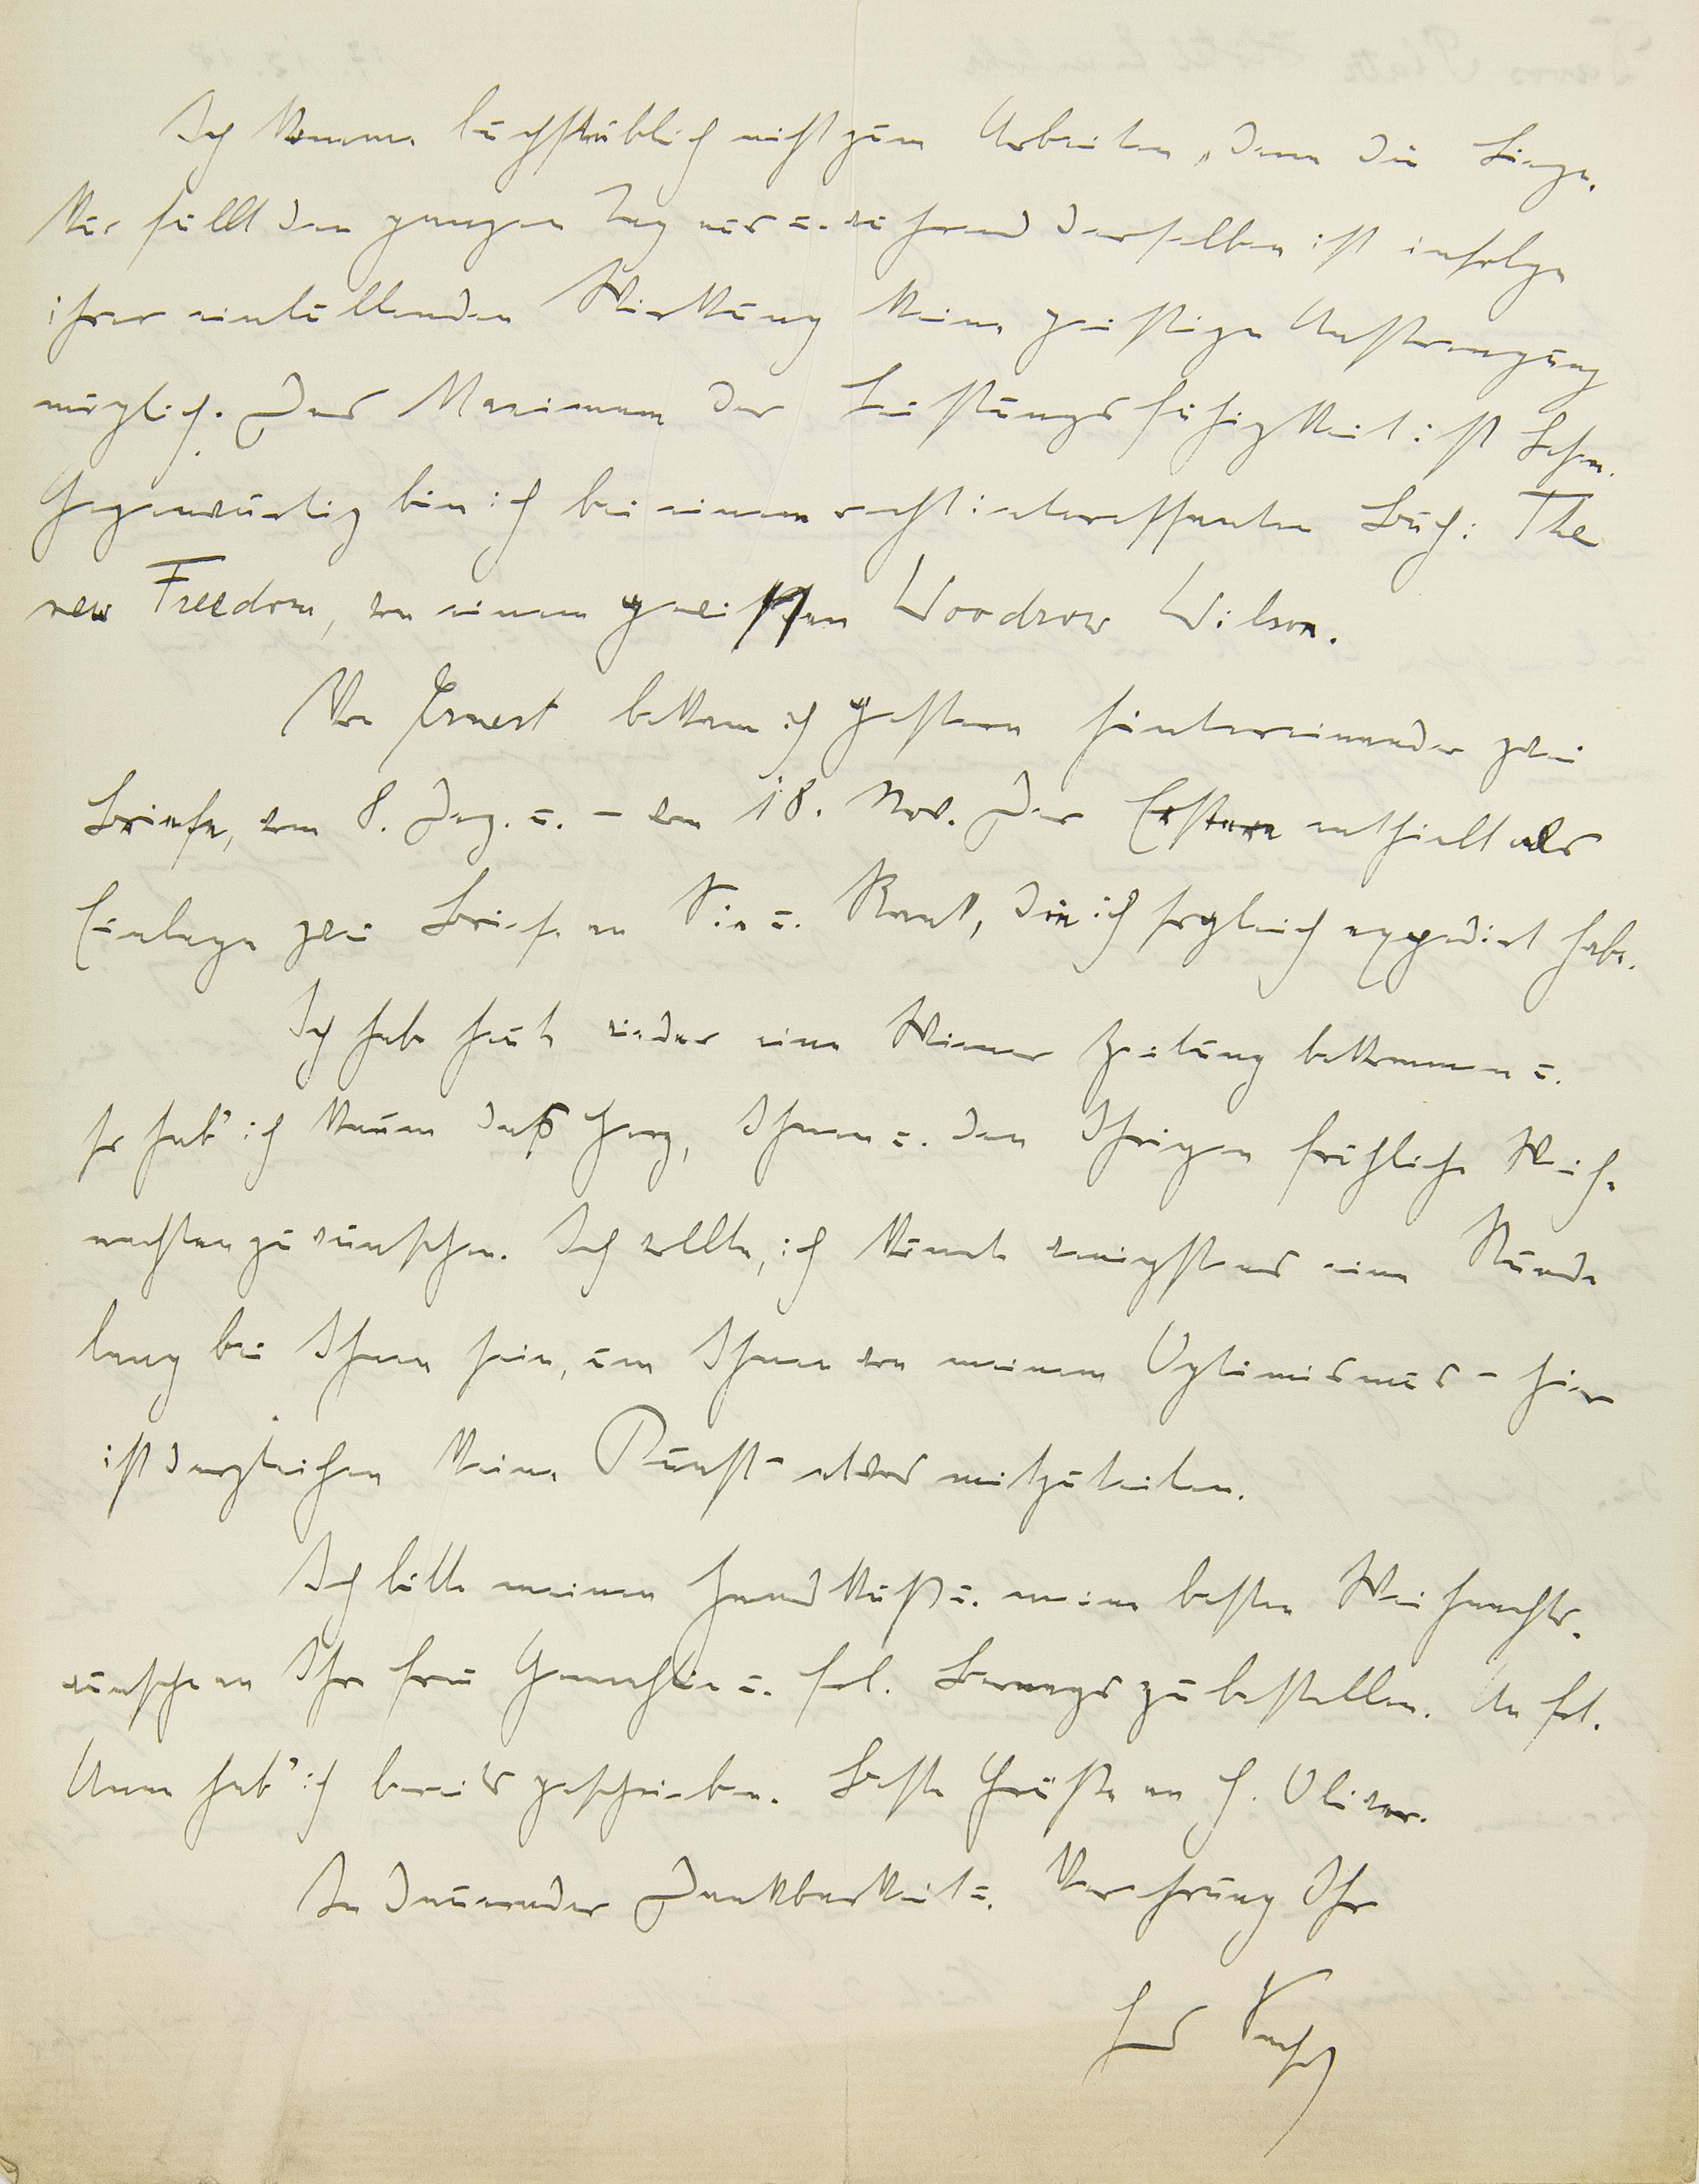 Ich komme buchstäblich nicht zum Arbeiten, denn die Liege-
kur füllt den ganzen Tag aus u. während derselben ist infolge
ihrer einlullenden Wirkung keine geistige Anstrengung
möglich. Das Maximum der Leistungsfähigkeit ist Lesen.
Gegenwärtig bin ich bei einem recht interessanten Buch: The
new Freedom, von einem gewissen Woodrow Wilson.
Von Ernest bekam ich gestern hintereinander zwei
Briefe, vom 8. Dez. u. – vom 18. Nov. Der Erstere enthielt als
Einlage zwei Briefe an Sie u. Rank, die ich sogleich expediert habe.
Ich habe heute wieder eine Wiener Zeitung bekommen u.
so hab' ich kaum daß Herz, Ihnen u. den Ihrigen fröhliche Weih-
nachten zu wünschen. Ich wollte, ich könnte wenigstens eine Stunde
lang bei Ihnen sein, um Ihnen von meinem Optimismus – hier
ist dergleichen keine Kunst – etwas mitzuteilen.
Ich bitte meinen Handkuß u. meine besten Weihnachts-
wünsche an Ihre Frau Gemahlin u. Frl. Bernays zu bestellen. An Frl.
Anna hab' ich bereits geschrieben. Beste Grüße an H. Oliver.
In dauernder Dankbarkeit u. Verehrung Ihr